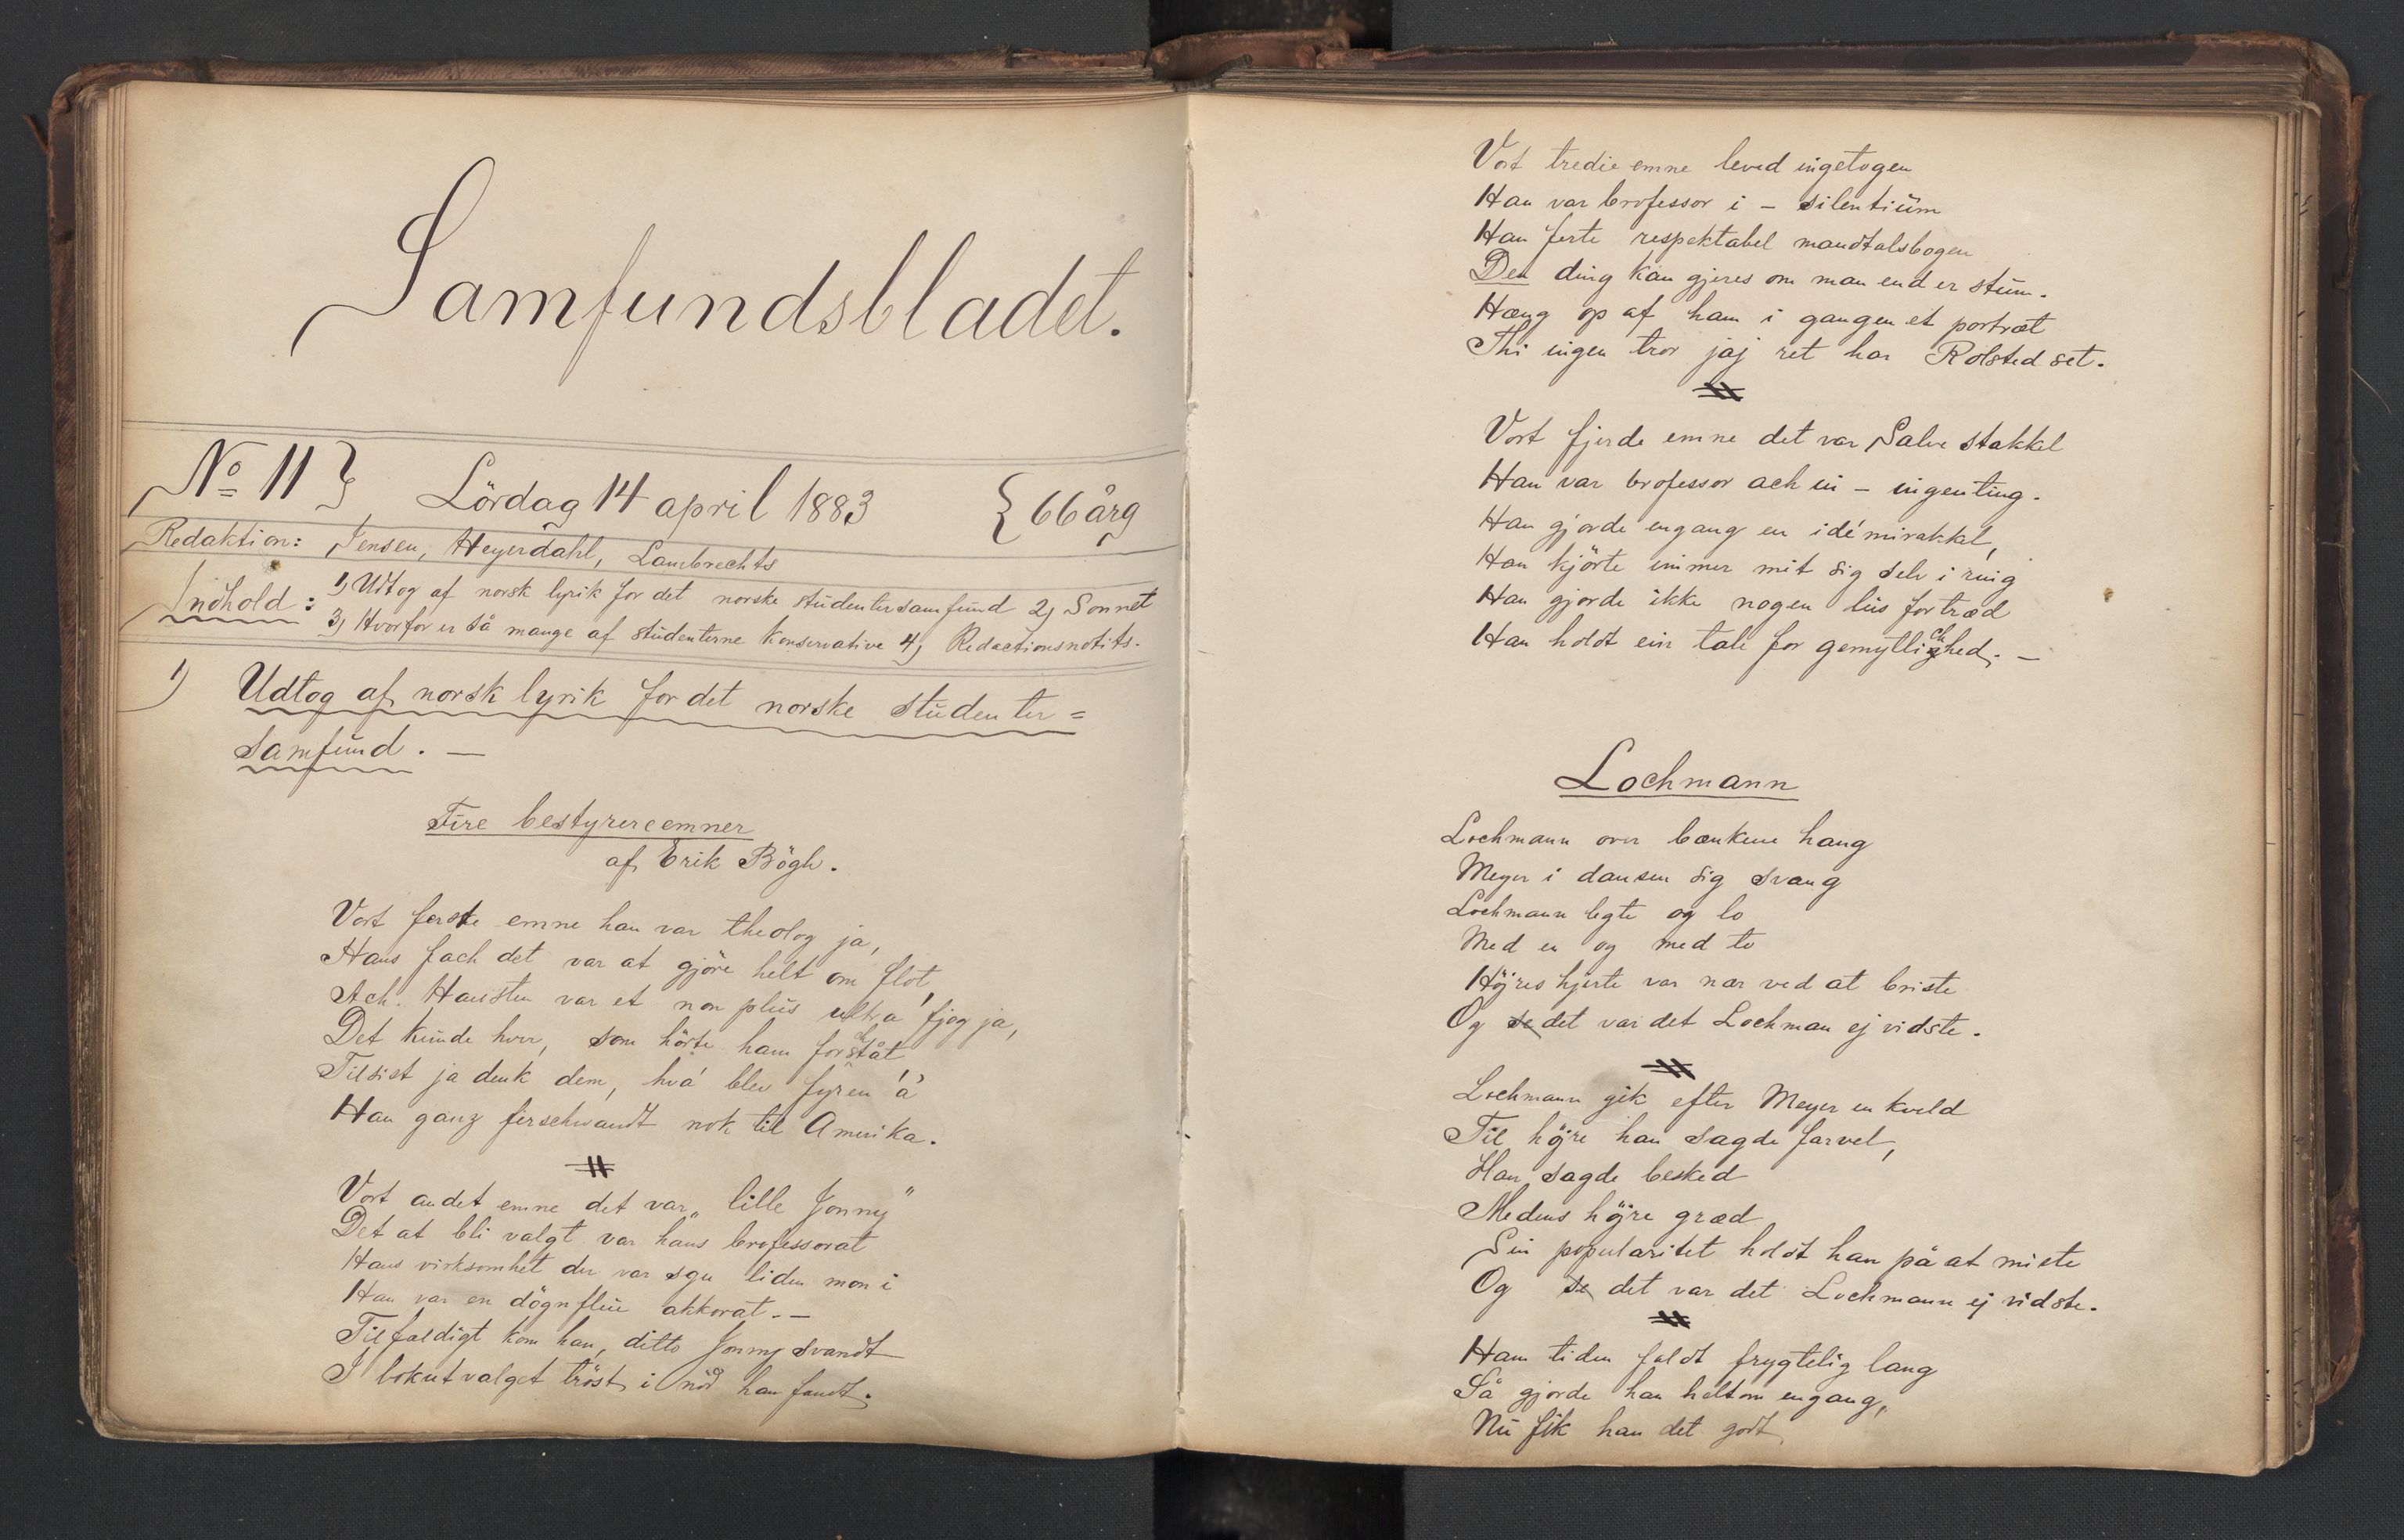 Samfundsbladet.
No 11} Lördag 14 april 1883 {66 årg
Redaktion: Jensen, Heyerdahl, Lambrechts
Indhold: 1) Udtog af norsk lyrik for det norske studentersamfund 2) Sonnet
3) Hvorfor er så mange af studenterne konservative 4) Redactionsnotits.
1) Udtog af norsk lyrik for det norske studenter=
samfund. —
Fire bestyrereemner
af Erik Bögh.
Vort förste emne han var theolog ja,
Hans fach det var at gjöre helt om flot,
Ach. Hansten var et non plus ultra fjog ja,
Det kunde hver, som hörte ham forstå't
Tilsist ja denk dem, hva' blev fyren a'
Han ganz ferschwandt nok til Amerika.
Vort andet emne det var „lille Jonny"
Det at bli valgt var hans brofessorat
Hans virksomhet der var sgu liden mon i
Han var en dögnflue akkorat. —
Tilfældigt kom han, ditto Jonny svandt
I bokutvalget tröst i nöd han fandt.
Vort tredie emne leved ingetogen
Han var brofessor i — silentium
Han förte respektabel mandtalsbogen
Den ding kan gjöres om man end er stum.
Hæng op af ham i gangen et portræt
Thi ingen tror jaj ret har Rolsted set.
Vort fjerde emne det var Salve stakkel
Han var brofessor ach in — ingenting.
Han gjorde engang en idé mirakkel,
Han kjörte immer mit sig selv i ring
Han gjorde ikke nogen lus fortræd
Han holdt ein tale for gemytlichhed. —
Lochmann
Lochmann over bænkene hang
Meyer i dansen sig svang
Lochmann legte og lo
Med en og med to
Höjres hjerte var nær ved at briste
Og se det var det Lochman ej vidste.
Lochmann gik efter Meyer en kveld
Til höjre han sagde farvel,
Han sagde besked
Medens höjre græd
Sin popularitet holdt han på at miste
Og se det var det Lochmann ej vidste.
Ham tiden faldt frygtelig lang
Så gjorde han heltom engang,
Nu fik han det godt